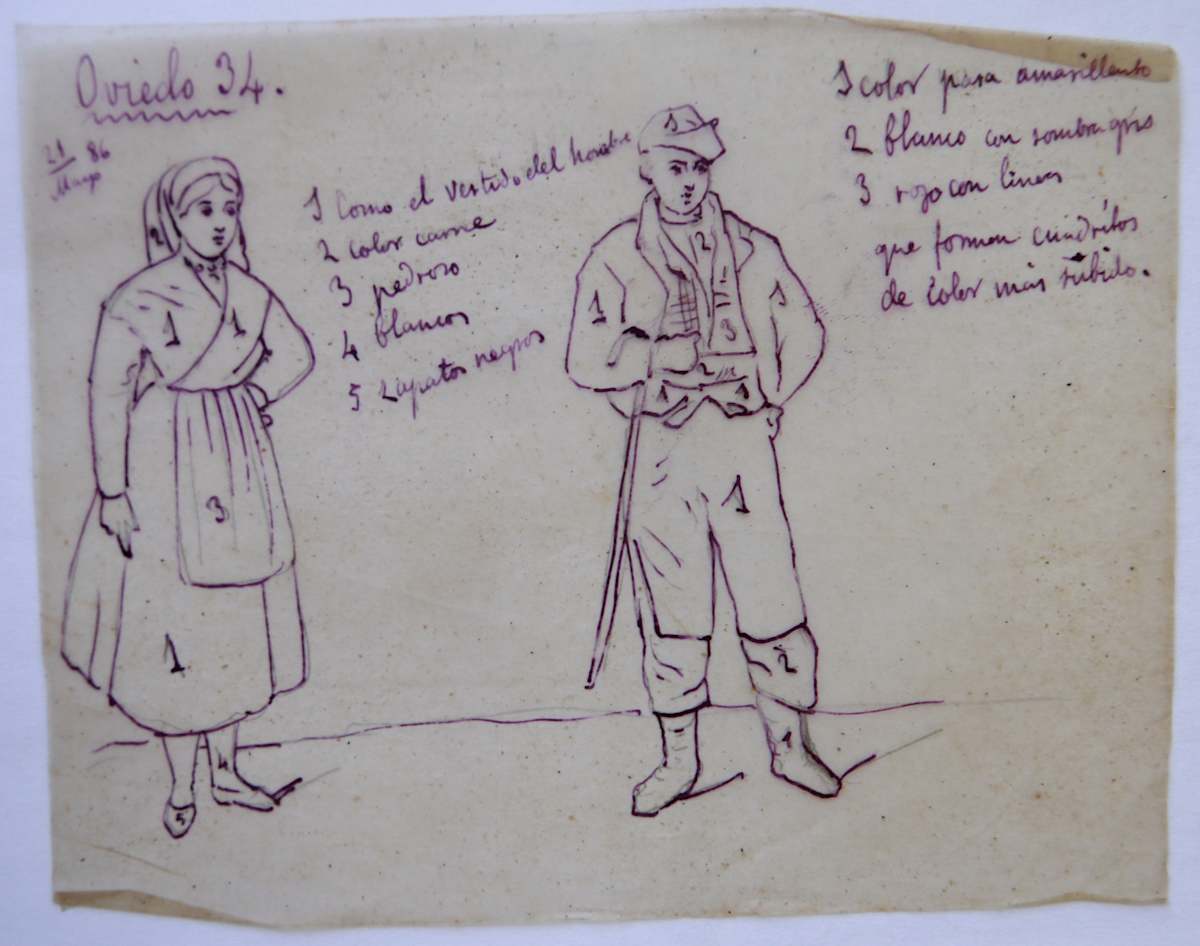 Oviedo 34.
21 86
Mayo
1 Como el vestido del hombre
2 color carne
3 pedroso
4 blancos
5 zapatos negros
1 color pasa amarillento
2 blanco con sombra gris
3 rojo con lineas
que forman cuadritos
de color más subido.
2
1 1
3
1
4
5
1
2
1 1
3
2
1 1
1
2
1